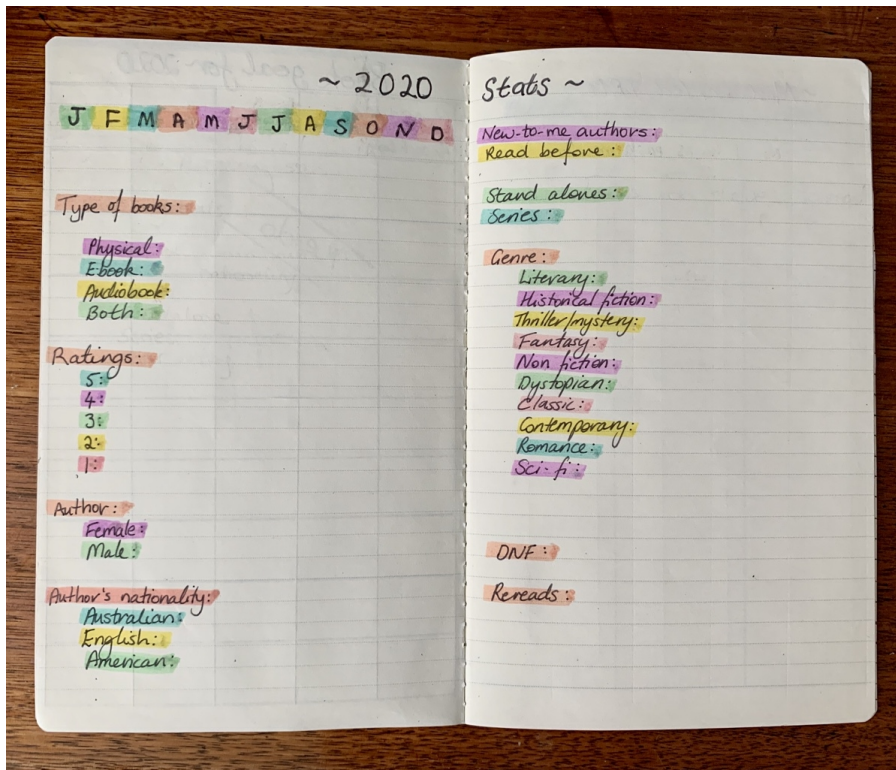 ~ 2020
J F M A M J J A S O N D
Type of books:
Physical:
Ebook:
Audiobook:
Both:
Ratings:
5:
4:
3:
2:
1:
Author:
Female:
Male:
Author's nationality:
Australian:
English:
American:
Stats ~
New-to-me authors:
Read before:
Stand alones:
Series:
Genre:
Literary:
Historical fiction:
Thriller/mystery:
Fantasy:
Non fiction:
Dystopian:
Classic:
Contemporary:
Romance:
Sci-fi:
DNF:
Rereads: